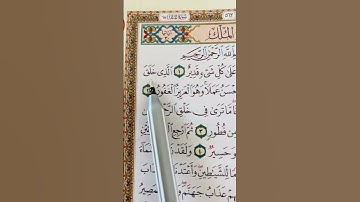 الملك
اللَّهِ الرَّحْمٰنِ الرَّحِيمِ
عَلَى كُلِّ شَيْءٍ قَدِيرٌ ١ الَّذِي خَلَقَ
حْسَنُ عَمَلًا وَهُوَ الْعَزِيزُ الْغَفُورُ
مَا تَرَى فِي خَلْقِ الرَّحْ
مِنْ فُطُورٍ ٣ ثُمَّ ارْجِعِ
حَسِيرٌ ٤ وَلَقَدْ
لِلشَّيٰطِينِ وَأَعْتَدْنَا
عَذَابُ جَهَنَّمَ الْمَصِيرُ